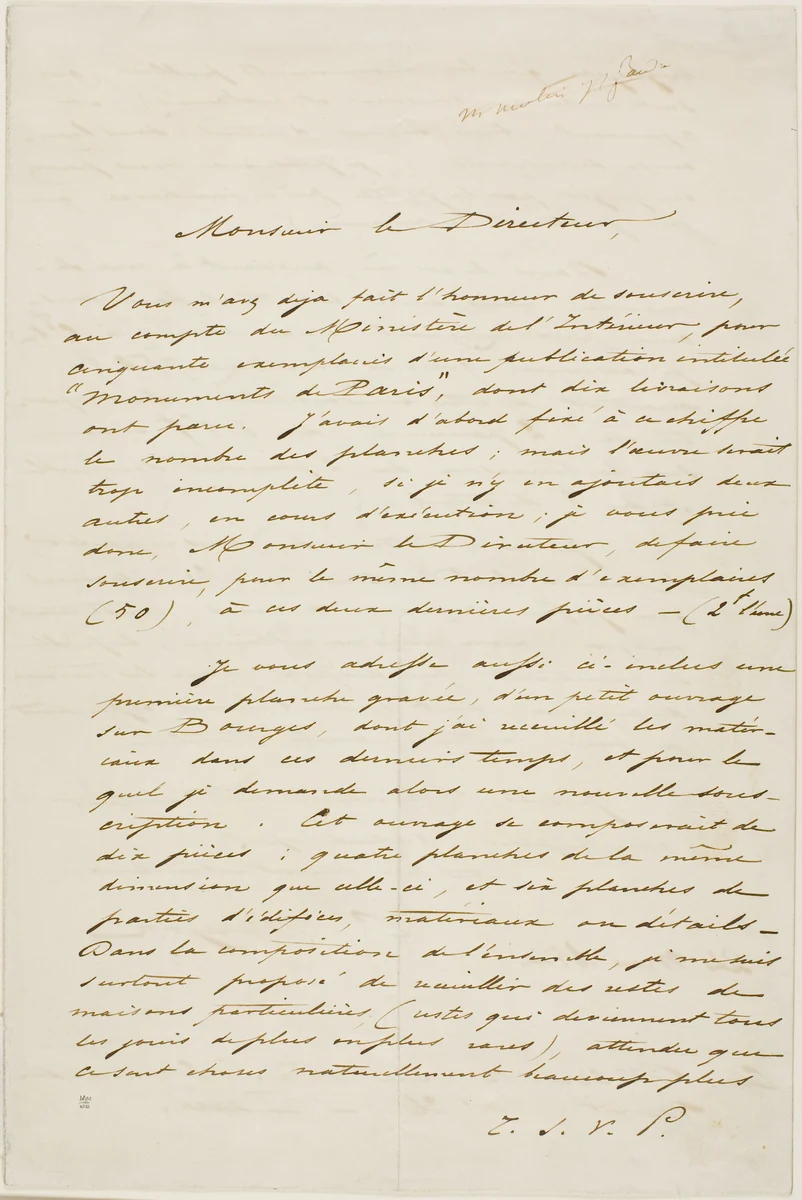 Monsieur le Directeur,
Vous m'avez déja fait l'honneur de souscrire,
au compte du Ministère de l'Intérieur, pour
cinquante exemplaires d'une publication intitulée
"Monuments de Paris", dont dix livraisons
ont paru. J'avais d'abord fixé à ce chiffre
le nombre des planches ; mais l'œuvre serait
trop incomplète, si je n'y en ajoutais deux
autres, en cours d'exécution ; je vous prie
donc, Monsieur le Directeur, de faire
souscrire, pour le même nombre d'exemplaires
(50), à ces deux dernières pièces — (2f l'une)
Je vous adresse aussi ci-inclus une
première planche gravée, d'un petit ouvrage
sur Bourges, dont j'ai recueilli les matér-
iaux dans ces derniers temps, et pour le
quel je demande alors une nouvelle sous-
cription. Cet ouvrage se composerait de
dix pièces ; quatre planches de la même
dimension que celle-ci, et six planches de
parties d'édifices, matériaux ou détails —
Dans la composition de l'ensemble, je me suis
surtout proposé de recueillir des restes de
maisons particulières, (restes qui deviennent tous
les jours de plus en plus rares), attendu que
ce sont choses naturellement beaucoup plus
T. S. V. P.